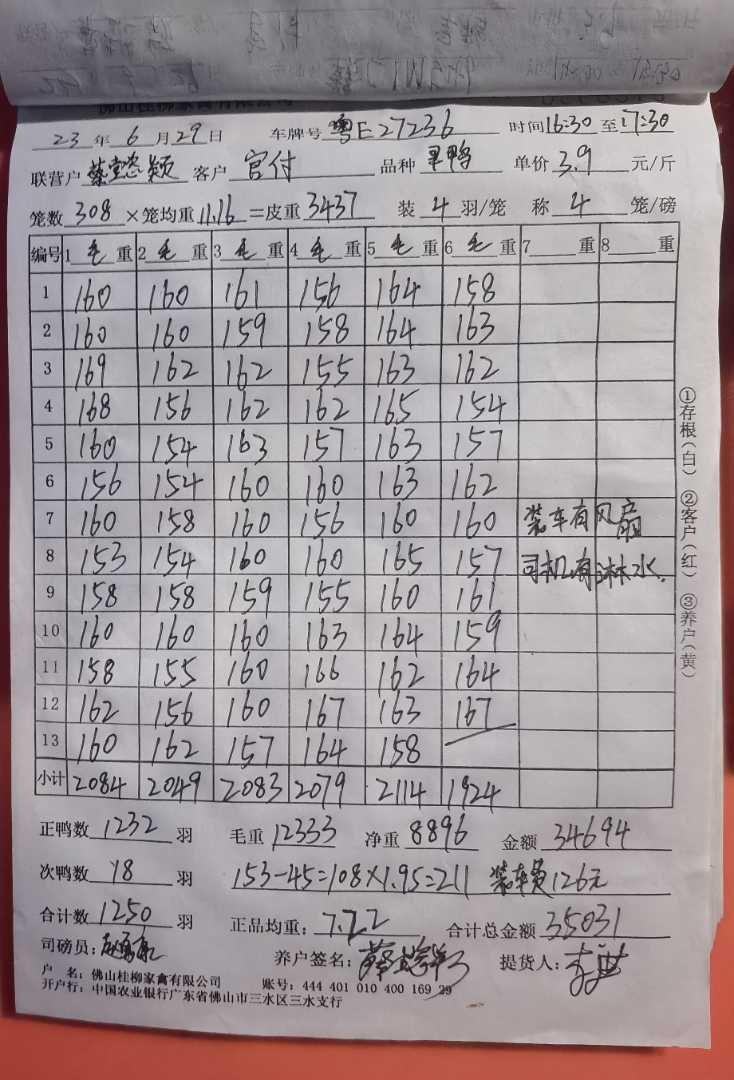 佛山桂柳家禽有限公司
23 年 6 月 29 日 车牌号 粤E27236 时间 16:30 至 17:30
联营户 客户 官付 品种 单价 3.9 元/斤
笼数 308 ×笼均重 11.16 =皮重 3437 装 4 羽/笼 称 4 笼/磅
编号 1 毛 重 2 毛 重 3 毛 重 4 毛 重 5 毛 重 6 毛 重 7 重 8 重
1 160 160 161 156 164 158
2 160 160 159 158 164 163
3 169 162 162 155 163 162
4 168 156 162 162 165 154
5 160 154 163 157 163 157
6 156 154 160 160 163 162
7 160 158 160 156 160 160 装车有风扇
8 153 154 160 160 165 157 司机有淋水.
9 158 158 159 155 160 161
10 160 160 160 163 164 159
11 158 155 160 166 162 164
12 162 156 160 167 163 167
13 160 162 157 164 158
小计 2084 2049 2083 2079 2114 1924
①存根(白) ②客户(红) ③养户(黄)
正鸭数 1232 羽 毛重 12333 净重 8896 金额 34694
次鸭数 18 羽 153-45=108×1.95=211 装车费126元
合计数 1250 羽 正品均重: 7.22 合计总金额 35031
司磅员: 养户签名: 提货人:
户 名: 佛山桂柳家禽有限公司 账号: 444 401 010 400 169 29
开户行: 中国农业银行广东省佛山市三水区三水支行